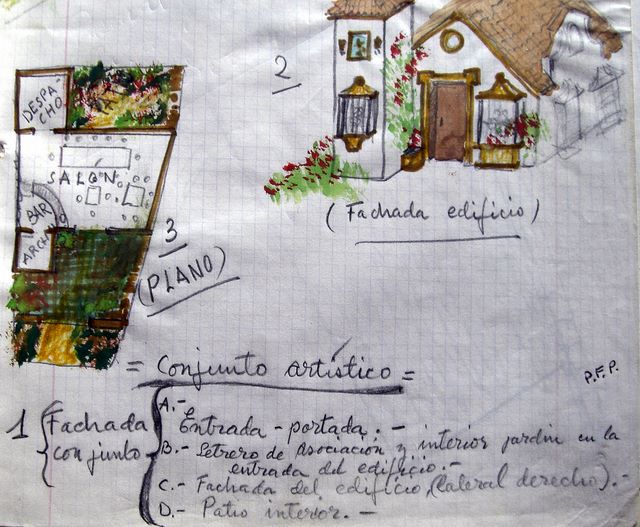 DESPA-
CHO
SALÓN
BAR
ARCH
3
(PLANO)
2
(Fachada edificio)
= Conjunto artístico =
P.F.P.
1 Fachada conjunto
A.- Entrada - portada. -
B.- Letrero de Asociación y interior jardín en la
entrada del edificio.-
C.- Fachada del edificio, (lateral derecho).-
D.- Patio interior. -